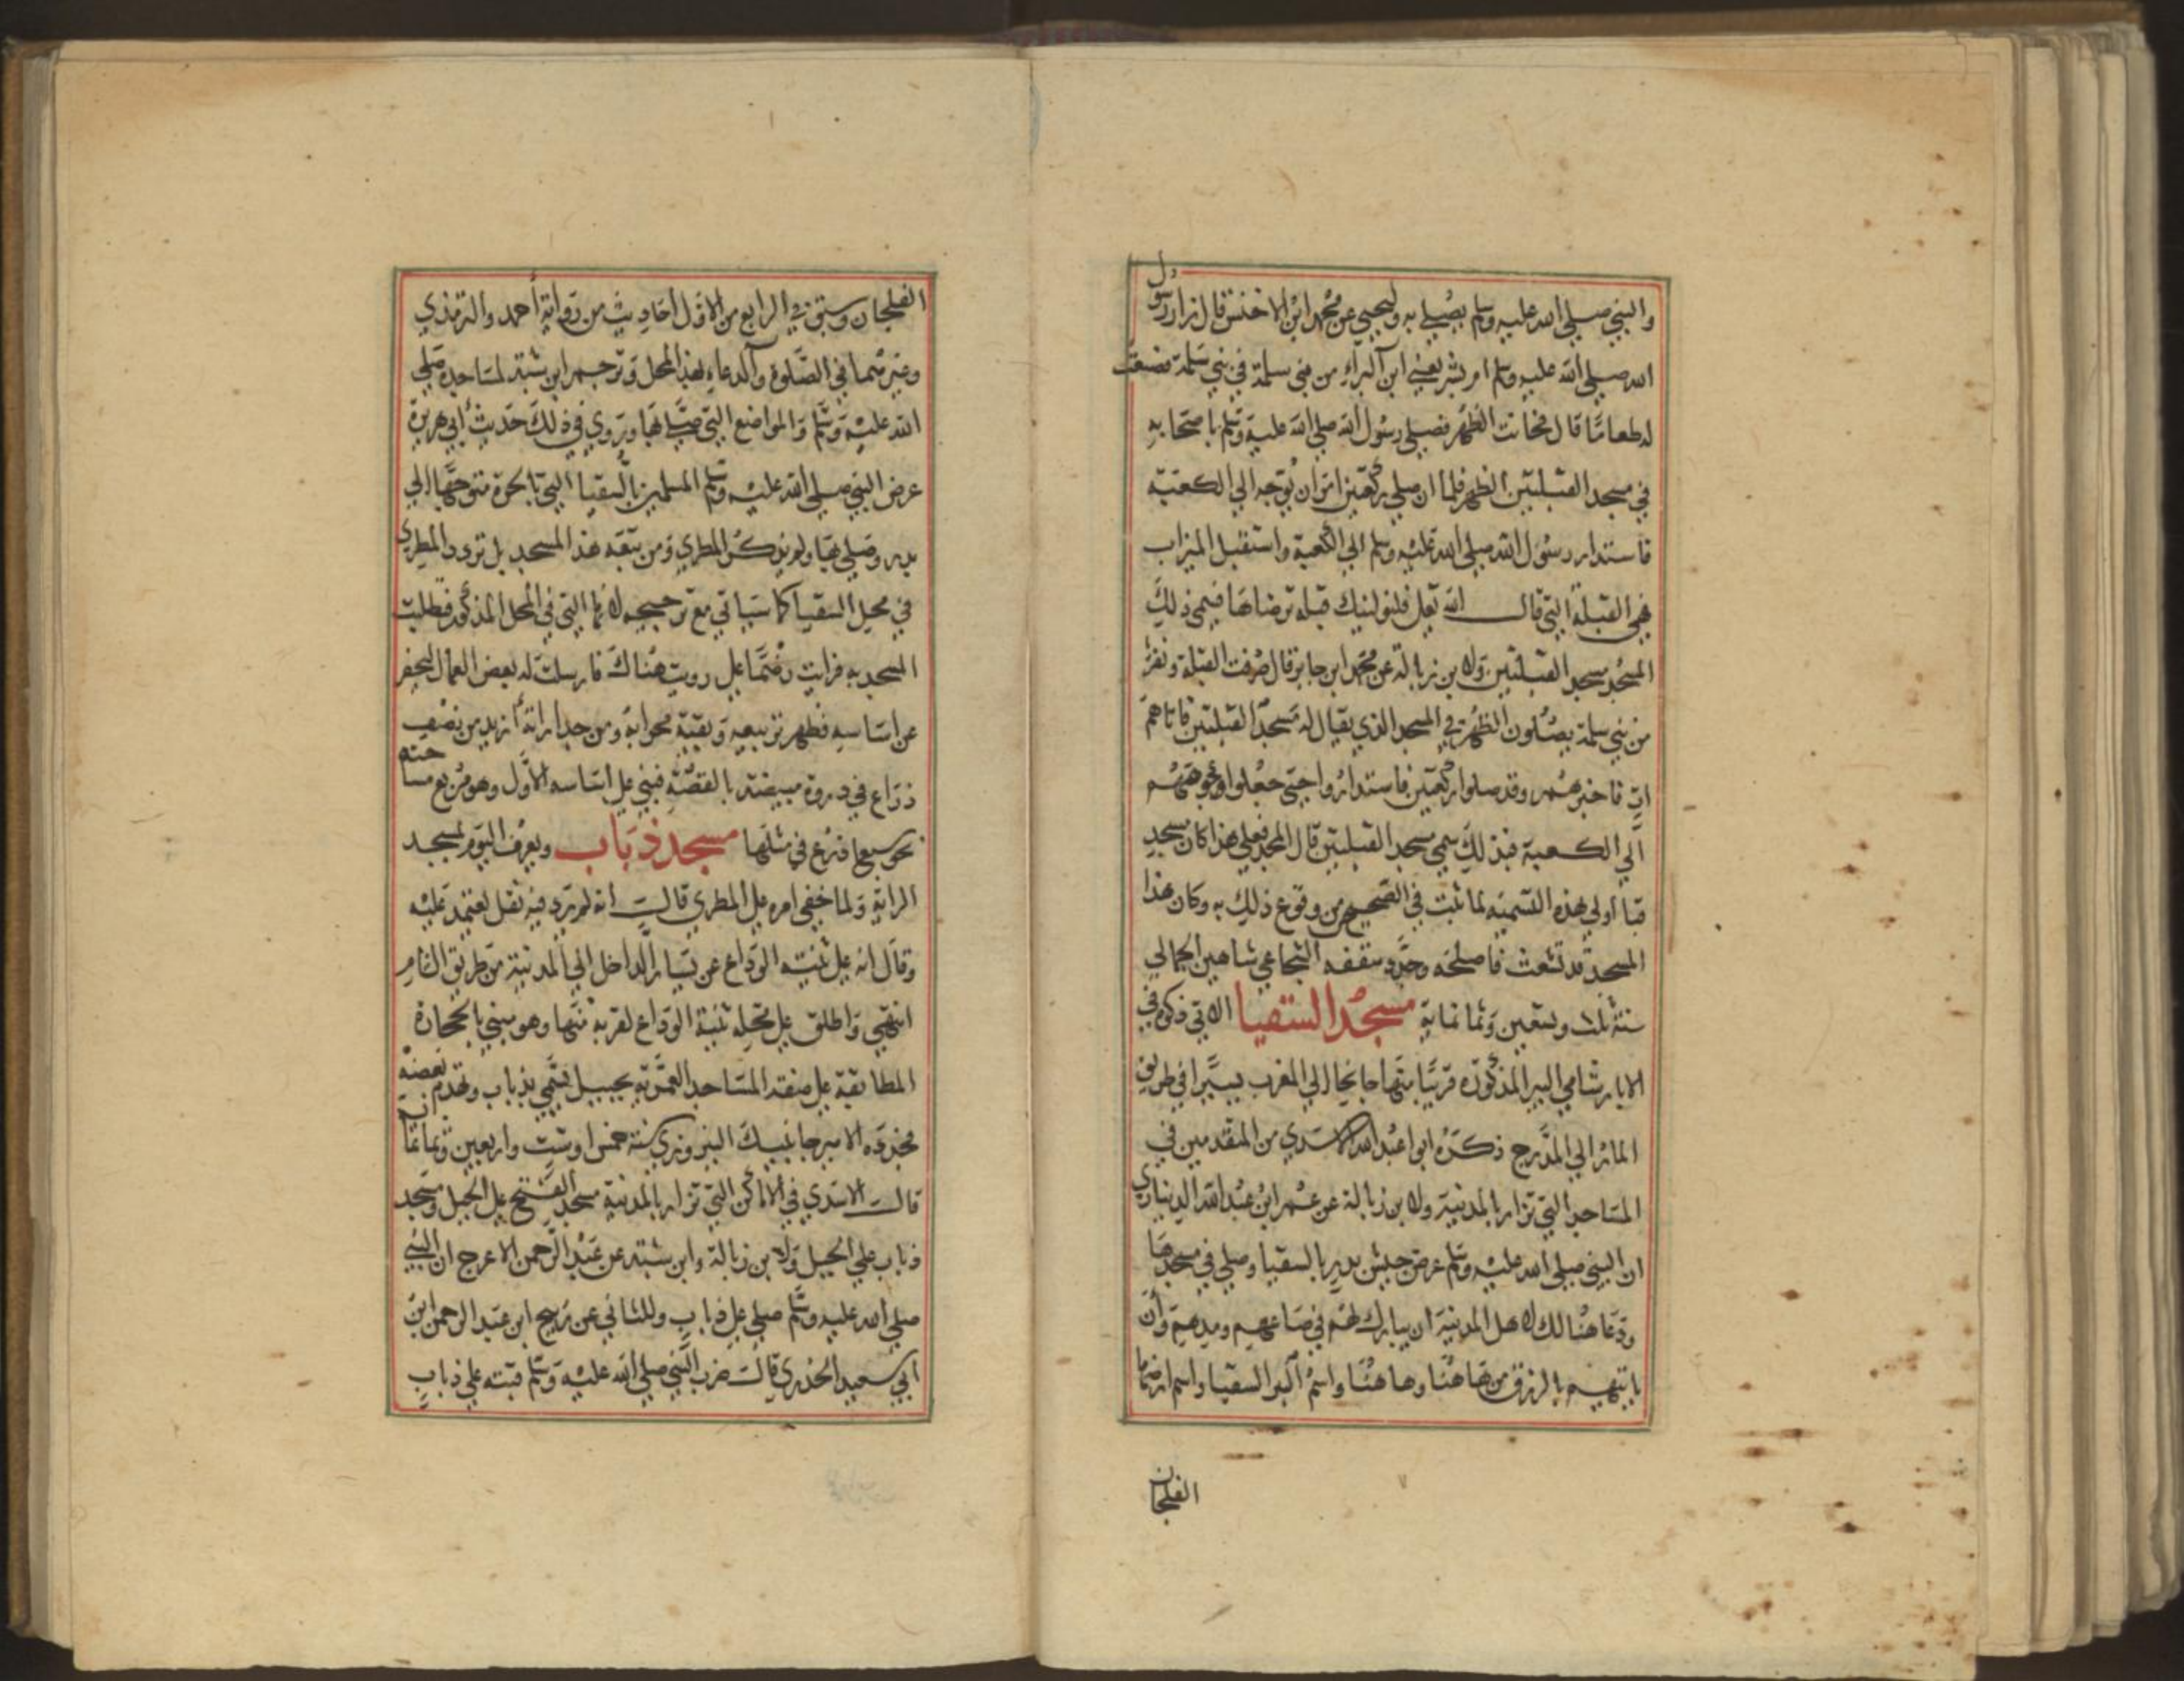 والنبي صلى الله عليه وسلم يصلي به وليحيى عن محمد ابن الاخنس قال زار رسول
الله صلى الله عليه وسلم ام بشر يعني ابن البراء من بني سلمة في بني سلمة فصنعت
له طعاما قال فحانت الظهر فصلى رسول الله صلى الله عليه وسلم باصحابه
في مسجد القبلتين الظهر فلما ان صلى ركعتين امر ان يوجه الى الكعبة
فاستدار رسول الله صلى الله عليه وسلم الى الكعبة واستقبل الميزاب
فهي القبلة التي قال الله تعالى فلنولينك قبلة ترضاها فسمي ذلك
المسجد مسجد القبلتين ولابن زبالة عن محمد ابن جابر قال صرفت القبلة ونفر
من بني سلمة يصلون الظهر في المسجد الذي يقال له مسجد القبلتين فاتاهم
ات فاخبرهم وقد صلوا ركعتين فاستداروا حتى جعلوا وجوههم
الى الكعبة فبذلك سمي مسجد القبلتين قال المجد فعلى هذا كان مسجد
قبا اولى بهذه التسمية لما ثبت في الصحيح من وقوع ذلك به وكان هذا
المسجد قد تشعث فاصلحه وجدد سقفه الشجاعي شاهين الجمالي
سنة ثلث وتسعين وثمانماية مسجد السقيا الاتي ذكره في
الابار شامي البير المذكورة قريبا منها جانحا الى المغرب يسيرا في طريق
المار الى المدرج ذكره ابو اعبد الله الاسدي من المتقدمين في
المساجد التي تزار بالمدنية ولابن زبالة عن عمر ابن عبد الله الديناري
ان النبي صلى الله عليه وسلم عرض جيش بدر بالسقيا وصلى في مسجدها
ودعا هنالك لاهل المدينة ان يبارك لهم في صاعهم ومدهم وان
ياتيهم بالرزق من هاهنا وهاهنا واسم البير السقيا واسم ارضها
الفلجان
الفلجان وسبق في الرابع من الاول احاديث من رواية احمد والترمذي
وغيرهما في الصلوة والدعاء بهذا المحل وترجم ابن شبة لمساجده صلى
الله عليه وسلم والمواضع التي صلى بها وروي في ذلك حديث ابي هريرة
عرض النبي صلى الله عليه وسلم المسلمين بالسقيا التي بالحرة متوجها الى
بدر وصلى بها ولم يذكر المطري ومن تبعه هذا المسجد بل تردد المطري
في محل السقيا كما سياتي مع ترجيحه لانها التي في المحل المذكور فطلبت
المسجد به فرايت رضما على رويت هناك فارسلت له بعض العمال لحفر
عن اساسه فظهر تربيعه وبقية محرابه ومن جداراته ازيد من نصف
ذراع في دروة مبيضة بالقصة فبني على اساسه الاول وهو مربع مساحته
نحو سبع اذرع في مثلها مسجد ذباب ويعرف اليوم لمسجد
الراية ولما خفي امره على المطري قالت انه لم يرد فيه نقل يعتمد عليه
وقال انه على ثنية الوداع عن يسار الداخل الى المدينة من طريق الشام
انتهى واطلق على محله ثنية الوداع لقربه منها وهو مبني بالحجارة
المطابقة على صفة المساجد العمرية بجبيل تسمى بذباب وتهدم بعضه
فجدده الامير جانبيك النيروزي سنة خمس اوست واربعين وثمانماية
قالت الاسدي في الاماكن التي تزار بالمدنية مسجد الفتح على الجبل ومسجد
ذباب على الجبل ولابن زبالة وابن شبة عن عبد الرحمن الاعرج ان النبي
صلى الله عليه وسلم صلى على ذباب وللثاني عن ربيح ابن عبد الرحمن ابن
ابي سعيد الخدري قالت ضرب النبي صلى الله عليه وسلم قبته على ذباب